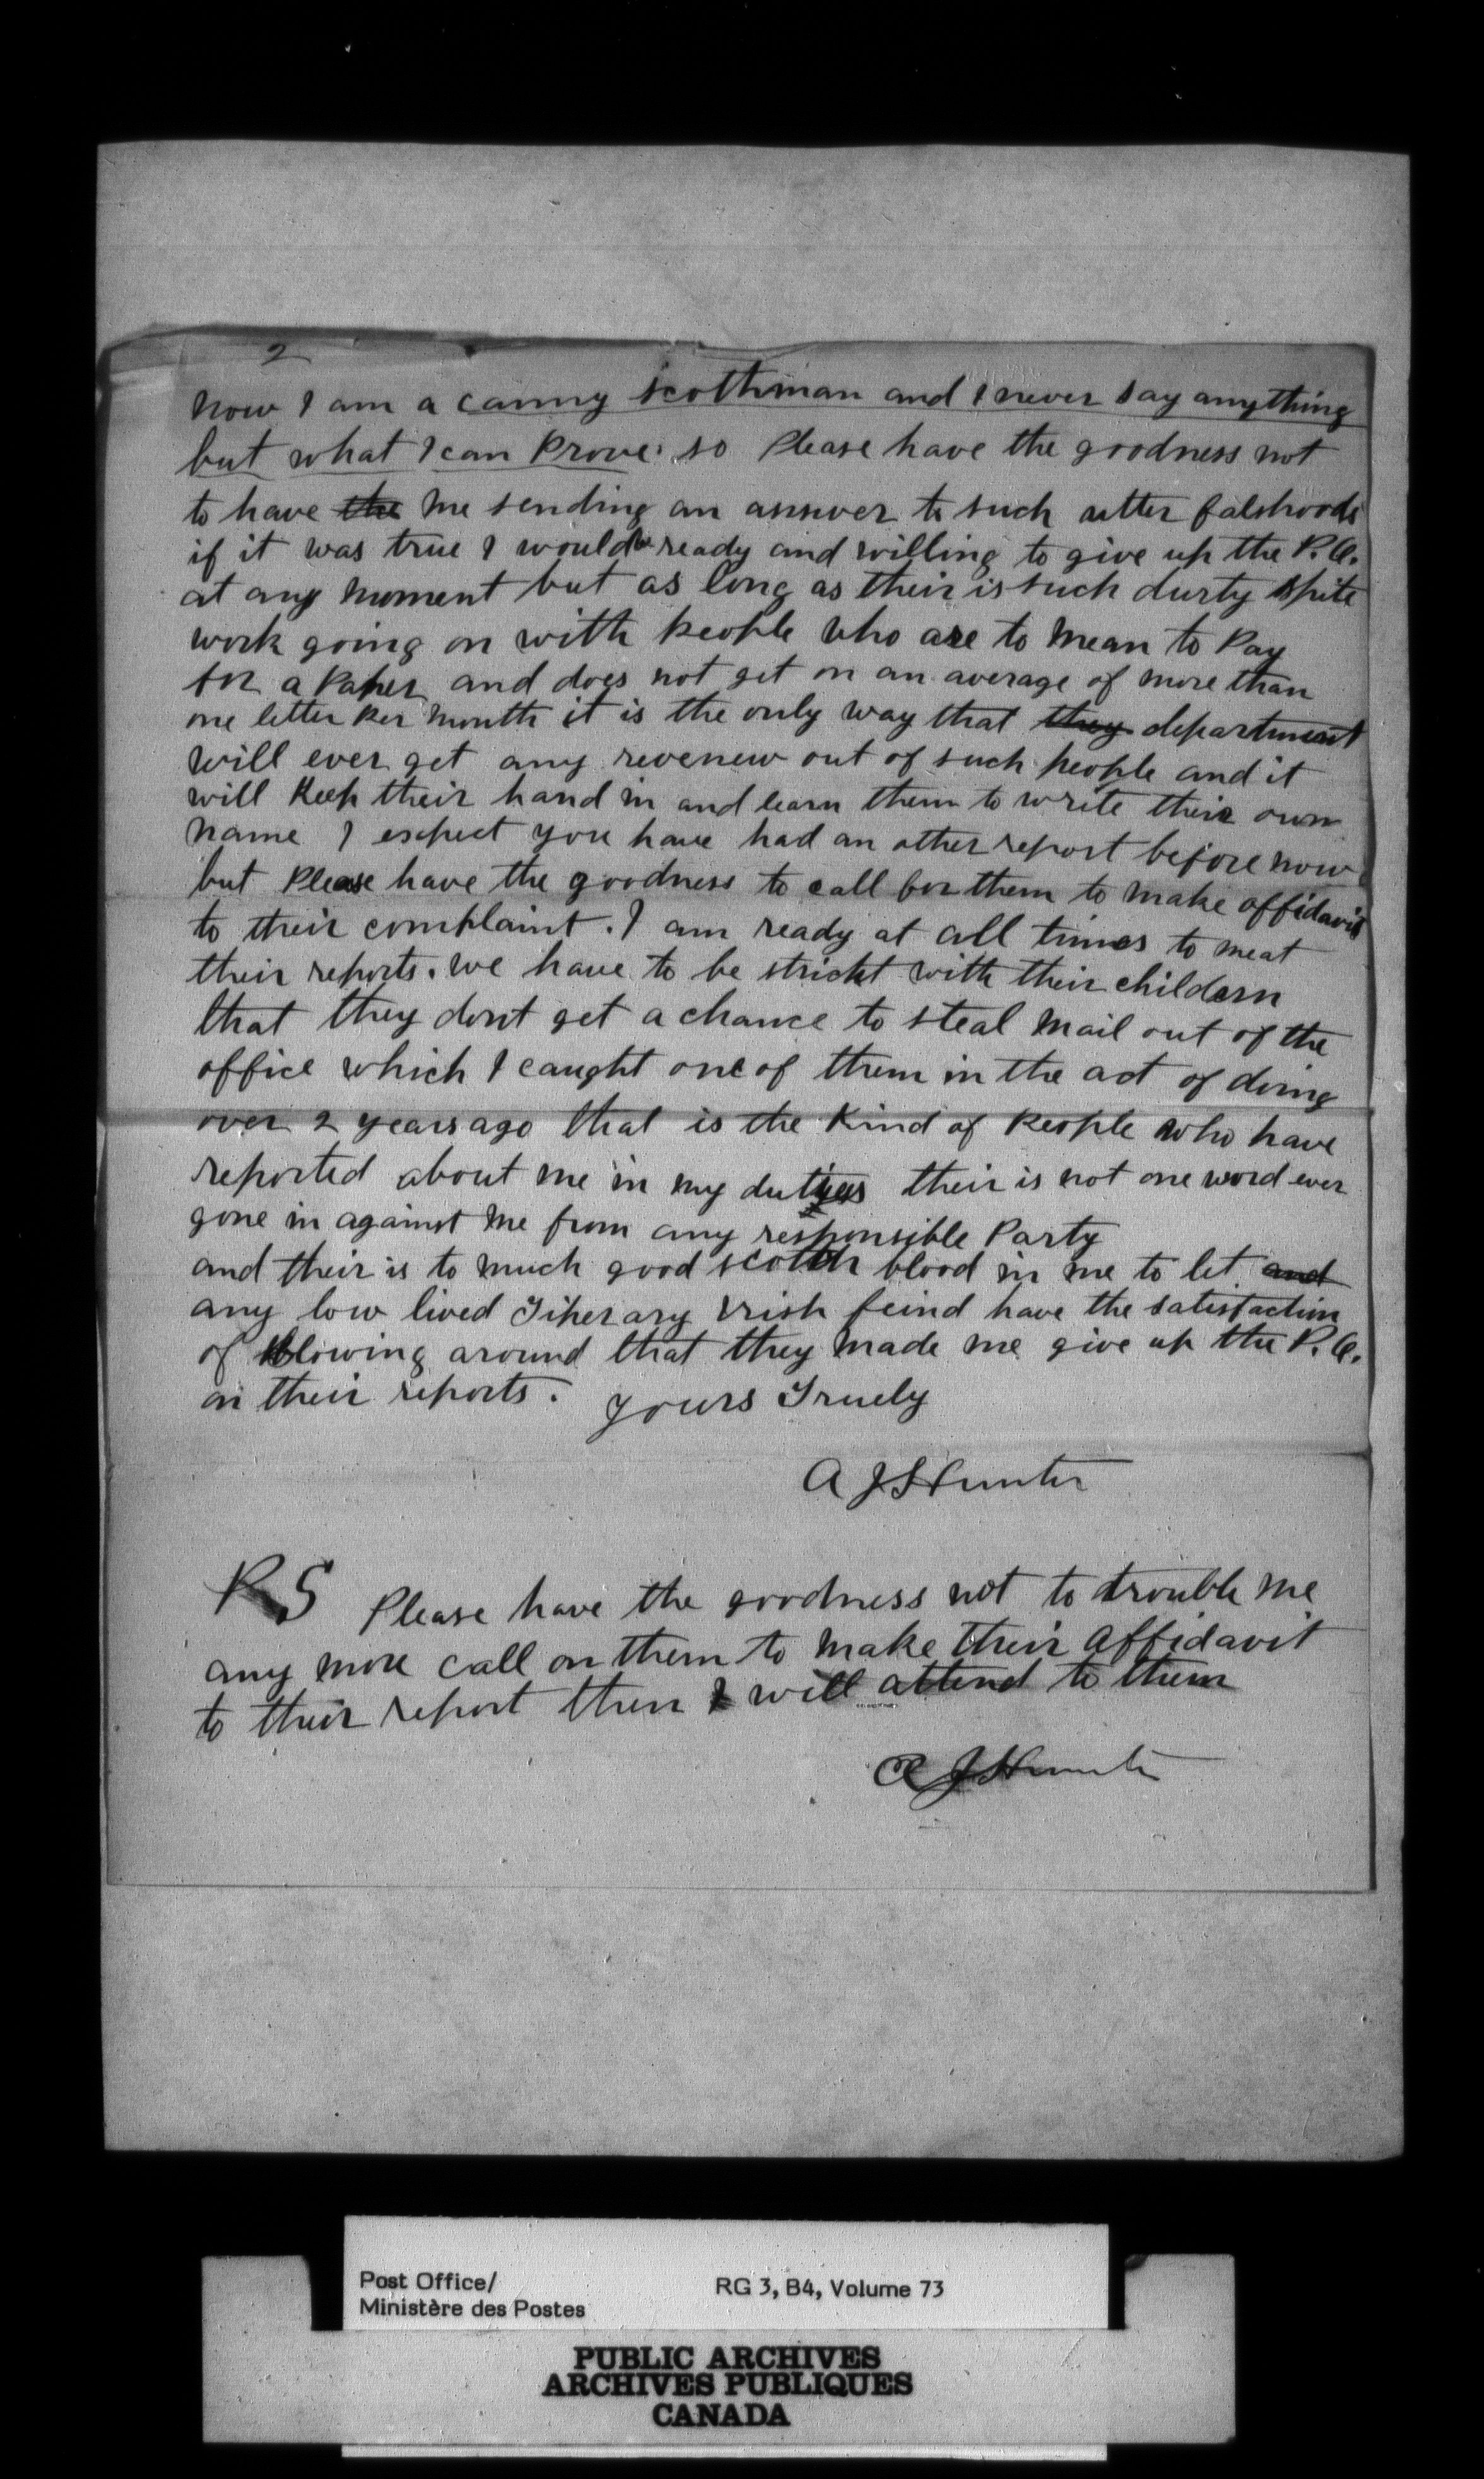 2
Now I am a canny scothman and I never say anything
but what I can Prove so Please have the goodness not
to have the me sending an answer to such utter falshoods
if it was true I would be ready and willing to give up the P.O.
at any moment but as long as their is such durty spite
work going on with People who are to mean to Pay
for a Paper and does not get on an average of more than
one letter Per month it is the only way that they department
will ever get any revenew out of such people and it
will Keep their hand in and learn them to write their own
name I expect you have had an other report before now
but Please have the goodness to call for them to make affidavit
to their complaint. I am ready at all times to meat
their reports. we have to be strickt with their childern
that they dont get a chance to steal mail out of the
office which I caught one of them in the act of doing
over 2 years ago that is the Kind of People who have
reported about me in my duties their is not one word ever
gone in against me from any responsible Party
and their is to much good scotch blood in me to let and
any low lived Tiperary Irish feind have the satisfaction
of blowing around that they made me give up the P.O.
on their reports. Yours Truely
A J S Hunter
P.S Please have the goodness not to trouble me
any more call on them to make their affidavit
to their report then I will attend to them
A J S Hunter
Post Office/
Ministère des Postes
RG 3, B4, Volume 73
PUBLIC ARCHIVES
ARCHIVES PUBLIQUES
CANADA